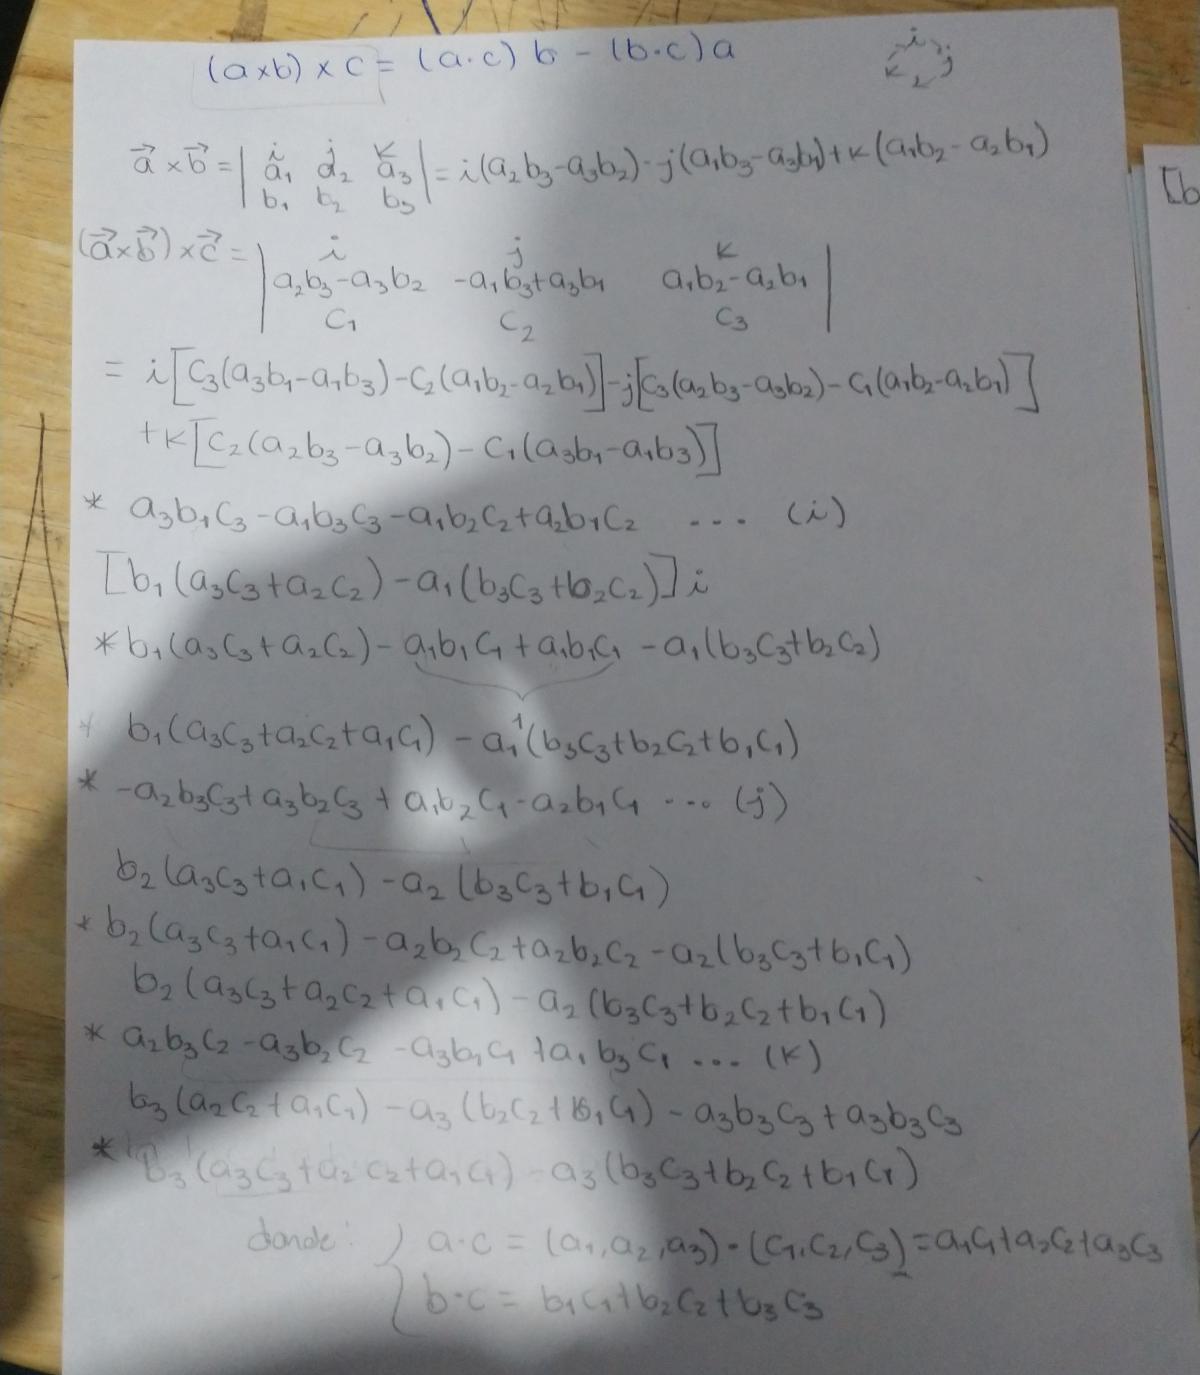 (a×b) × c = (a·c) b - (b·c) a
i j k
a⃗ × b⃗ = | i j k
a₁ a₂ a₃
b₁ b₂ b₃ | = i(a₂b₃-a₃b₂) - j(a₁b₃-a₃b₁) + k(a₁b₂-a₂b₁)
(a⃗×b⃗) × c⃗ = | i j k
a₂b₃-a₃b₂ -a₁b₃+a₃b₁ a₁b₂-a₂b₁
c₁ c₂ c₃ |
= i[c₃(a₃b₁-a₁b₃)-c₂(a₁b₂-a₂b₁)]-j[c₃(a₂b₃-a₃b₂)-c₁(a₁b₂-a₂b₁)]
+k[c₂(a₂b₃-a₃b₂)-c₁(a₃b₁-a₁b₃)]
* a₃b₁c₃-a₁b₃c₃-a₁b₂c₂+a₂b₁c₂ ... (i)
[b₁(a₃c₃+a₂c₂)-a₁(b₃c₃+b₂c₂)]i
* b₁(a₃c₃+a₂c₂)-a₁b₁c₁+a₁b₁c₁-a₁(b₃c₃+b₂c₂)
* b₁(a₃c₃+a₂c₂+a₁c₁)-a₁(b₃c₃+b₂c₂+b₁c₁)
* -a₂b₃c₃+a₃b₂c₃+a₁b₂c₁-a₂b₁c₁ ... (j)
b₂(a₃c₃+a₁c₁)-a₂(b₃c₃+b₁c₁)
* b₂(a₃c₃+a₁c₁)-a₂b₂c₂+a₂b₂c₂-a₂(b₃c₃+b₁c₁)
b₂(a₃c₃+a₂c₂+a₁c₁)-a₂(b₃c₃+b₂c₂+b₁c₁)
* a₂b₃c₂-a₃b₂c₂-a₃b₁c₁+a₁b₃c₁ ... (k)
b₃(a₂c₂+a₁c₁)-a₃(b₂c₂+b₁c₁)-a₃b₃c₃+a₃b₃c₃
* b₃(a₃c₃+a₂c₂+a₁c₁)-a₃(b₃c₃+b₂c₂+b₁c₁)
donde: } a·c = (a₁,a₂,a₃)·(c₁,c₂,c₃)=a₁c₁+a₂c₂+a₃c₃
{ b·c = b₁c₁+b₂c₂+b₃c₃
[b